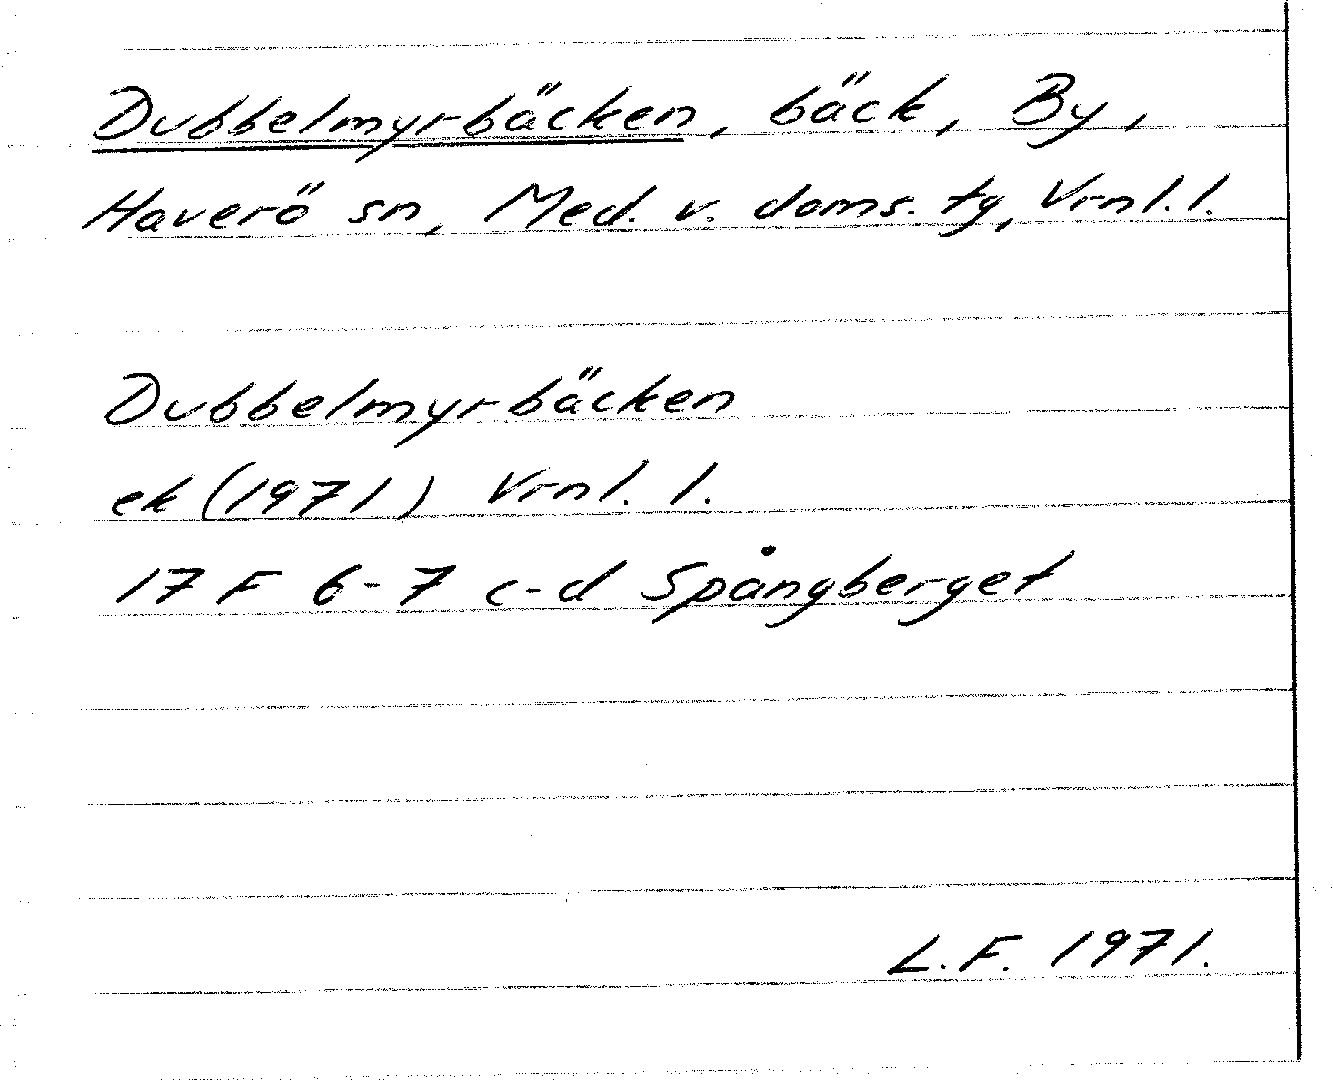 Dubbelmyrbäcken, bäck, By,
Haverö sn, Med. v. doms. tg, Vrnl. l.
Dubbelmyrbäcken
ek (1971) Vrnl. l.
17 F 6-7 c-d Spångberget
L.F. 1971.